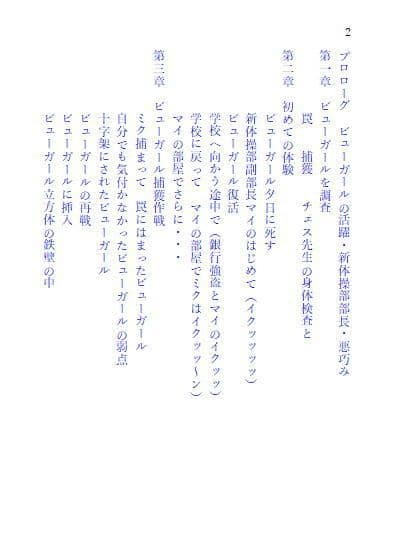 2
プロローグ　ビューガールの活躍・新体操部部長・悪巧み
第一章　ビューガールを調査
罠　捕獲　チェス先生の身体検査と
第二章　初めての体験
ビューガール夕日に死す
新体操部副部長マイのはじめて(イクッッッッ)
ビューガール復活
学校へ向かう途中で(銀行強盗とマイのイクッッ)
学校に戻って　マイの部屋でミクはイクッッ～ン)
マイの部屋でさらに・・・
第三章　ビューガール捕獲作戦
ミク捕まって　罠にはまったビューガール
自分でも気付かなかったビューガールの弱点
十字架にされたビューガール
ビューガールの再戦
ビューガールに挿入
ビューガール立方体の鉄壁の中